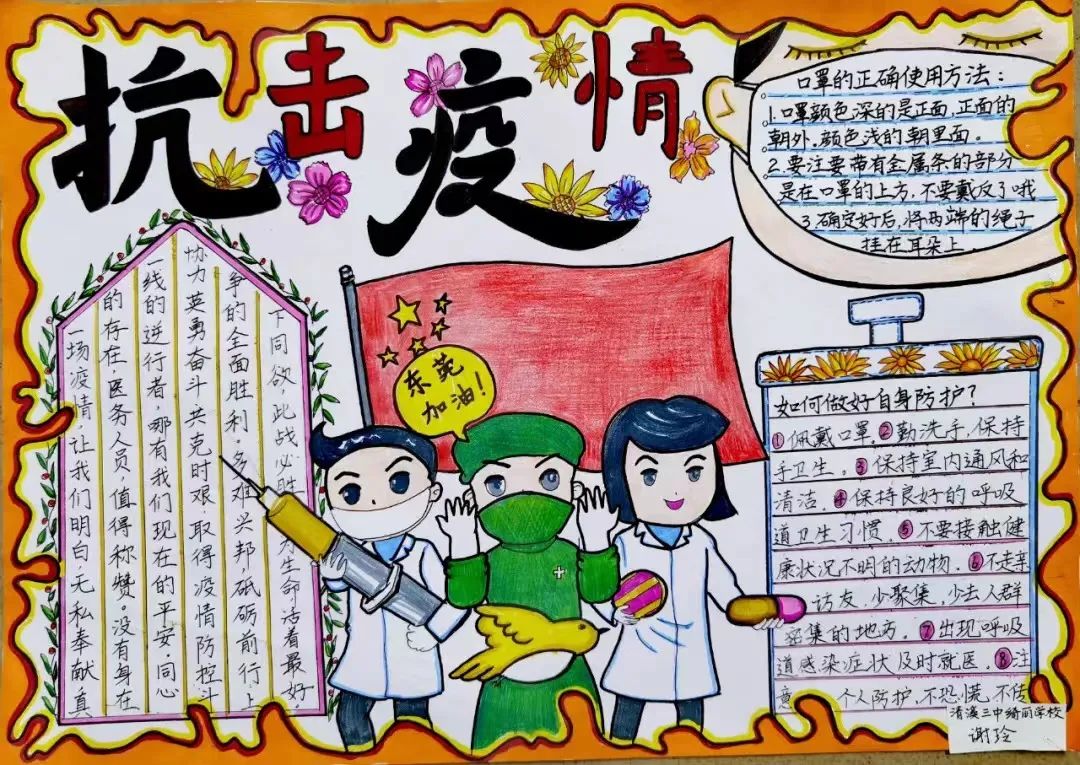 抗击疫情
口罩的正确使用方法：
1.口罩颜色深的是正面，正面的
朝外。颜色浅的朝里面。
2.要注要带有金属条的部分
是在口罩的上方，不要戴反了哦
3.确定好后，将两端的绳子
挂在耳朵上.
一场疫情，让我们明白，无私奉献真
的存在，医务人员，值得称赞。没有身在
一线的逆行者，哪有我们现在的平安。同心
协力英勇奋斗共克时艰 取得疫情防控斗
争的全面胜利，多难兴邦砥砺前行上
下同欲，此战必胜，为生命活着最好。
东莞
加油！
如何做好自身防护？
①佩戴口罩。②勤洗手，保持
手卫生。③保持室内通风和
清洁。④保持良好的呼吸
道卫生习惯。⑤不要接触健
康状况不明的动物。⑥不走亲
访友，少聚集，少去人群
密集的地方。⑦出现呼吸
道感染症状及时就医。⑧注
意 个人防护，不恐慌，不信
清溪三中绮丽学校
谢玲